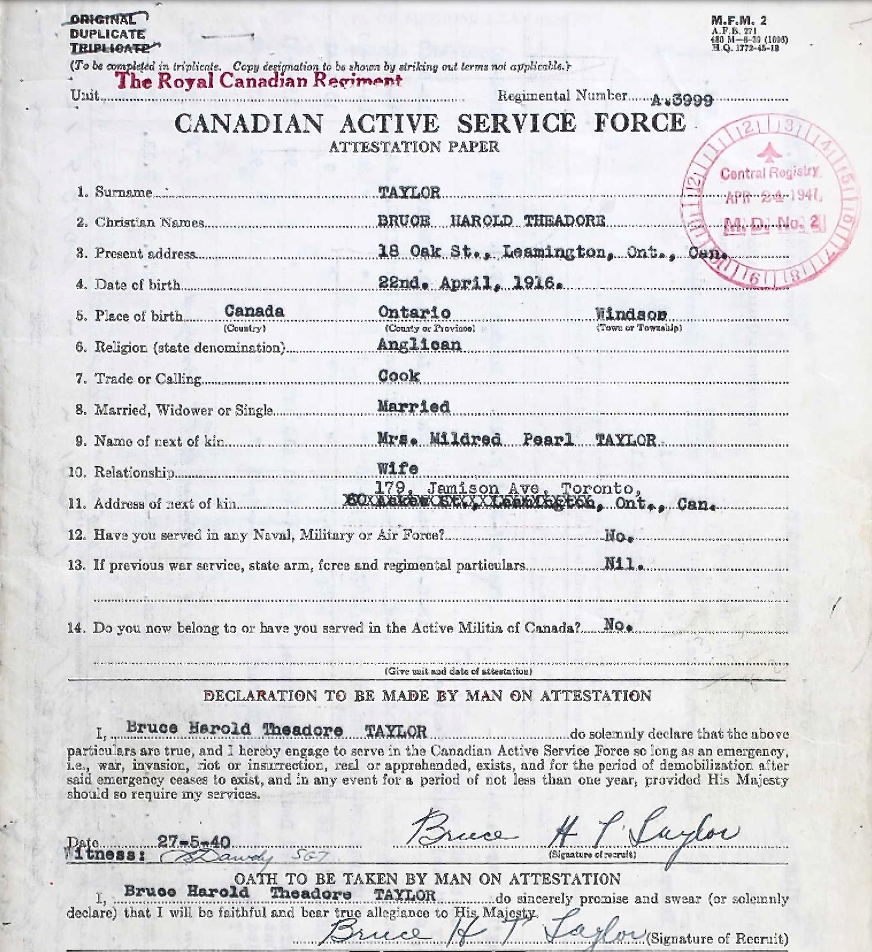 ORIGINAL
DUPLICATE
TRIPLICATE
M.F.M. 2
A.F.B. 271
480 M—8-39 (1096)
H.Q. 1772-45-18
(To be completed in triplicate. Copy designation to be shown by striking out terms not applicable.)
The Royal Canadian Regiment
Unit Regimental Number A.3999
CANADIAN ACTIVE SERVICE FORCE
ATTESTATION PAPER
Central Registry
APR 24 194
M.D. No. 2
1. Surname TAYLOR
2. Christian Names BRUCE HAROLD THEADORE
3. Present address 18 Oak St., Leamington, Ont., Can.
4. Date of birth 22nd. April, 1916.
5. Place of birth Canada Ontario Windsor
(Country) (County or Province) (Town or Township)
6. Religion (state denomination) Anglican
7. Trade or Calling Cook
8. Married, Widower or Single Married
9. Name of next of kin Mrs. Mildred Pearl TAYLOR
10. Relationship Wife
179, Jamison Ave, Toronto,
11. Address of next of kin Leamington, Ont., Can.
12. Have you served in any Naval, Military or Air Force? No.
13. If previous war service, state arm, force and regimental particulars Nil.
14. Do you now belong to or have you served in the Active Militia of Canada? No.
(Give unit and date of attestation)
DECLARATION TO BE MADE BY MAN ON ATTESTATION
I, Bruce Harold Theadore TAYLOR do solemnly declare that the above
particulars are true, and I hereby engage to serve in the Canadian Active Service Force so long as an emergency,
i.e., war, invasion, riot or insurrection, real or apprehended, exists, and for the period of demobilization after
said emergency ceases to exist, and in any event for a period of not less than one year, provided His Majesty
should so require my services.
Date 27-5-40 Bruce H T Taylor
Witness: Dawdy SGT (Signature of recruit)
OATH TO BE TAKEN BY MAN ON ATTESTATION
I, Bruce Harold Theadore TAYLOR do sincerely promise and swear (or solemnly
declare) that I will be faithful and bear true allegiance to His Majesty.
Bruce H T Taylor (Signature of Recruit)